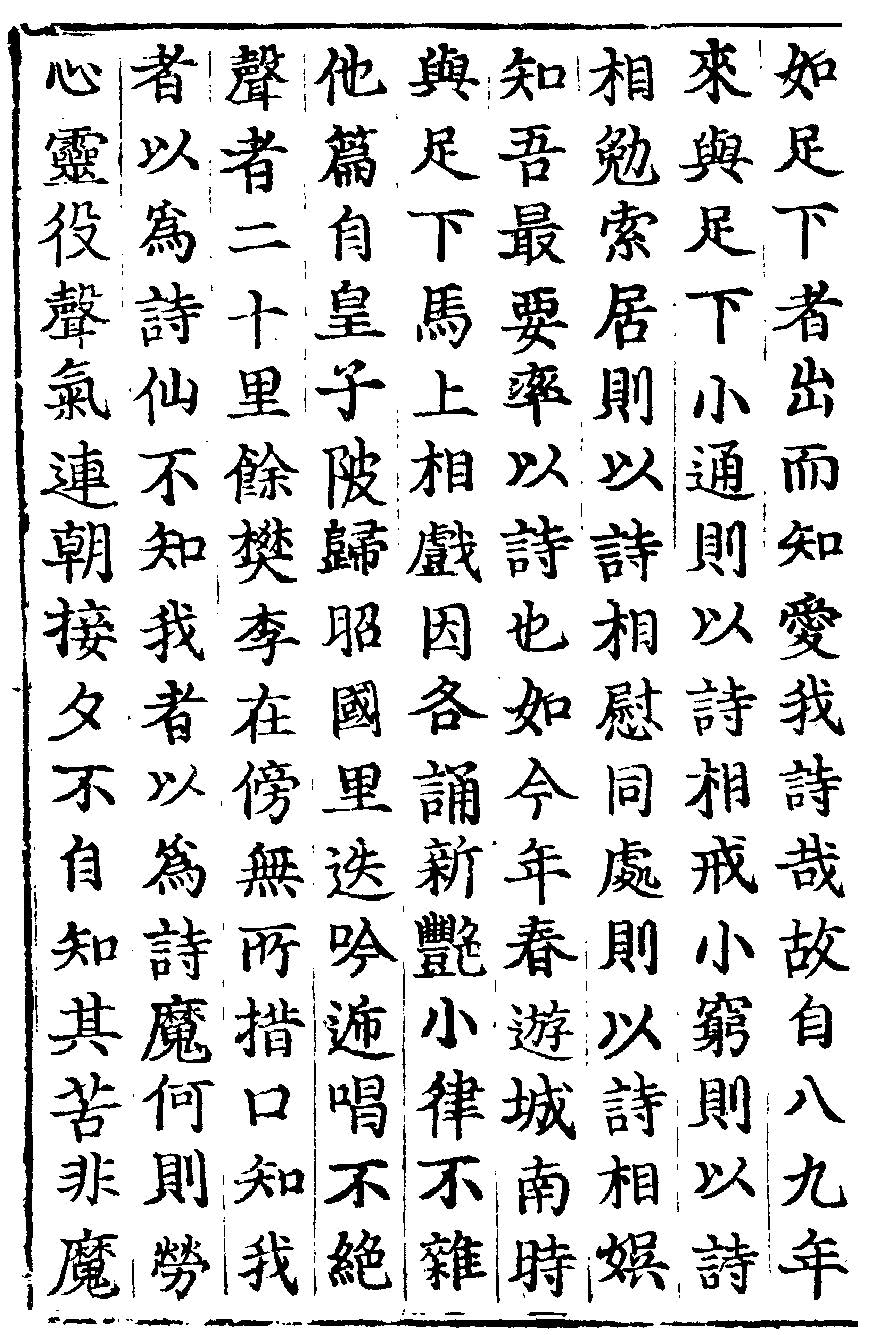 如足下者出而知愛我詩哉故自八九年
來與足下小通則以詩相戒小窮則以詩
相勉索居則以詩相慰同處則以詩相娯
知吾最要率以詩也如今年春遊城南時
與足下馬上相戲因各誦新艷小律不雜
他篇自皇子陂歸昭國里迭吟逓唱不絕
聲者二十里餘樊李在傍無所措口知我
者以爲詩仙不知我者以爲詩魔何則勞
心靈役聲氣連朝接夕不自知其苦非魔